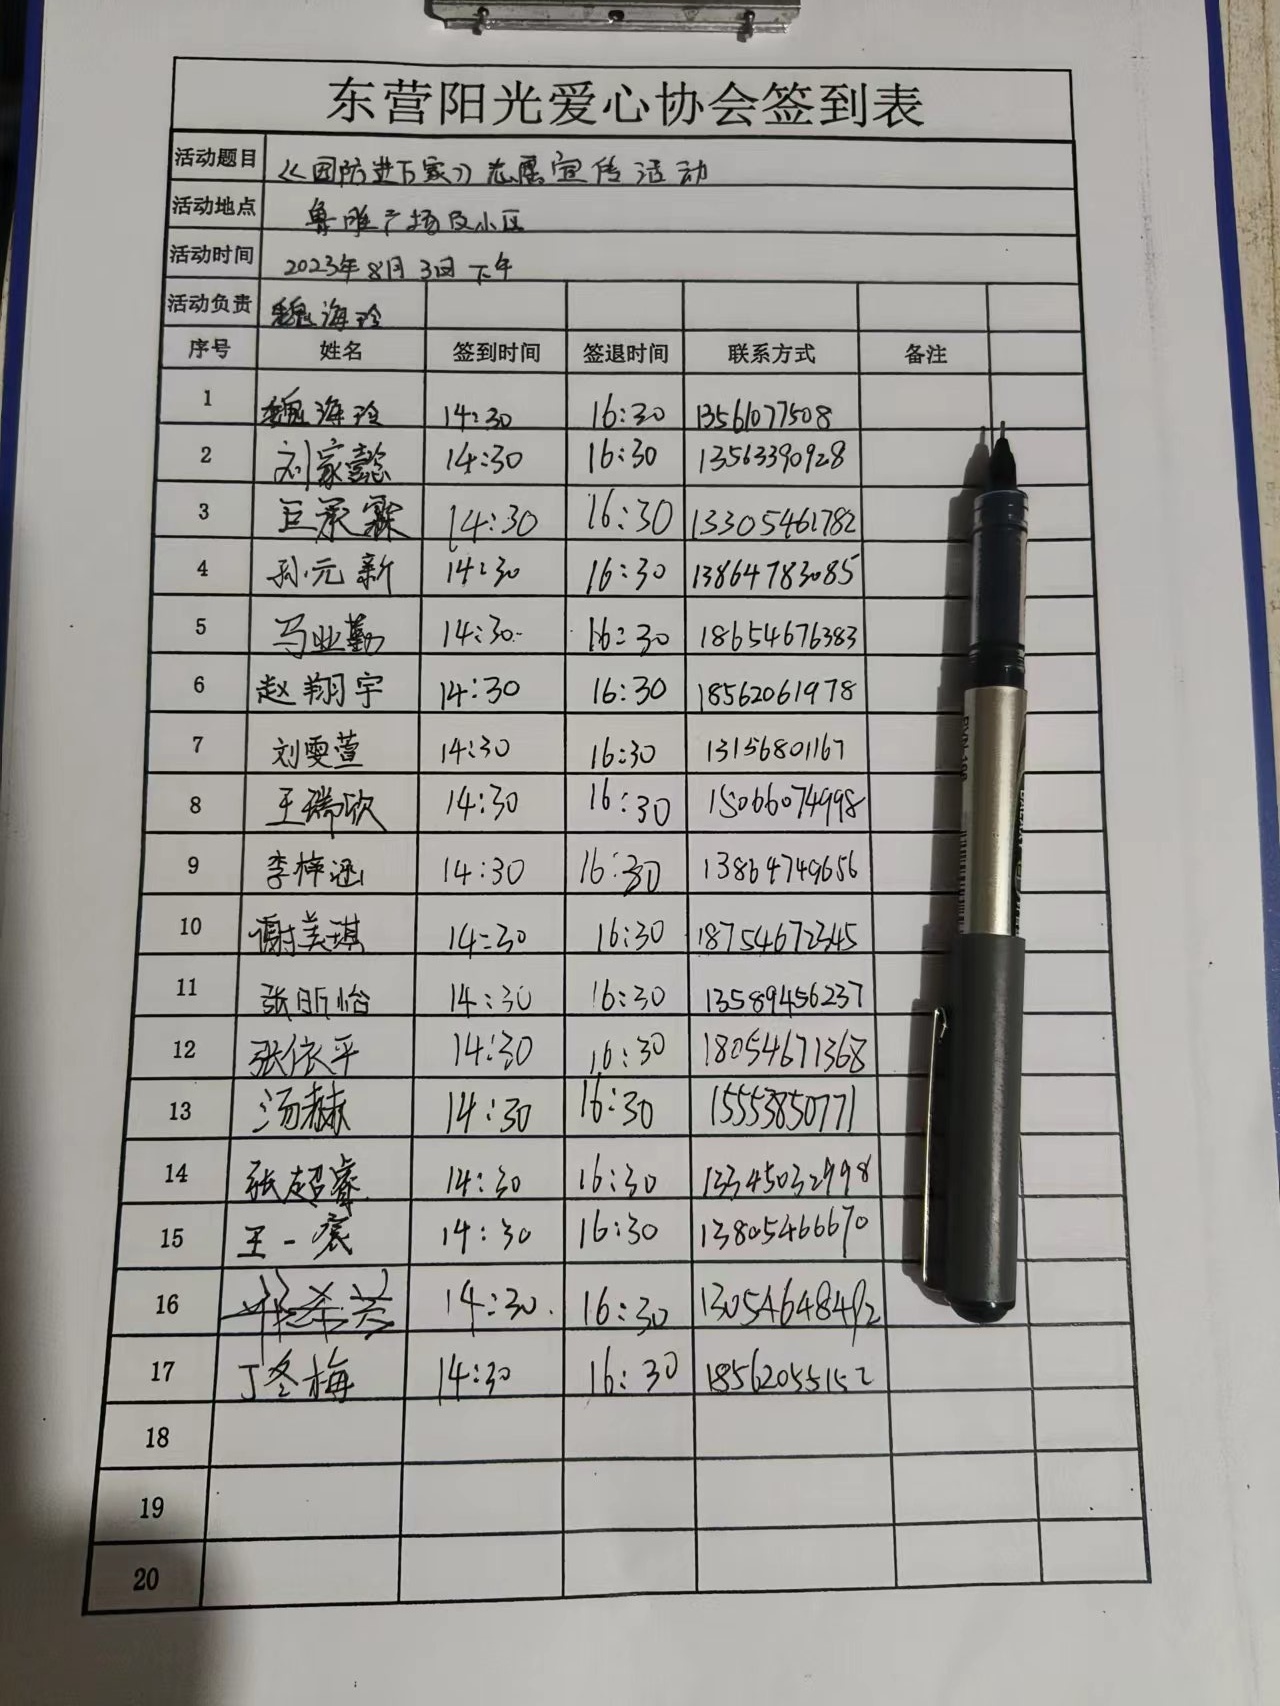 东营阳光爱心协会签到表
活动题目 《国防进万家》志愿宣传活动
活动地点 鲁雅广场及小区
活动时间 2023年8月3日下午
活动负责 魏海玲
序号 姓名 签到时间 签退时间 联系方式 备注
1 魏海玲 14:30 16:30 13561077508
2 刘家懿 14:30 16:30 13563390928
3 巨承霖 14:30 16:30 13305461782
4 孙元新 14:30 16:30 13864783085
5 马业勤 14:30 16:30 18654676383
6 赵翔宇 14:30 16:30 18562061978
7 刘雯萱 14:30 16:30 13156801167
8 王瑞欣 14:30 16:30 15066074998
9 李梓涵 14:30 16:30 13864749656
10 谢美琪 14:30 16:30 18754672345
11 张昕怡 14:30 16:30 13589456237
12 张依平 14:30 16:30 18054671368
13 汤赫 14:30 16:30 15553850771
14 张超睿 14:30 16:30 13345032998
15 王一宸 14:30 16:30 13805466670
16 14:30 16:30 13054648492
17 丁冬梅 14:30 16:30 18562055152
18
19
20